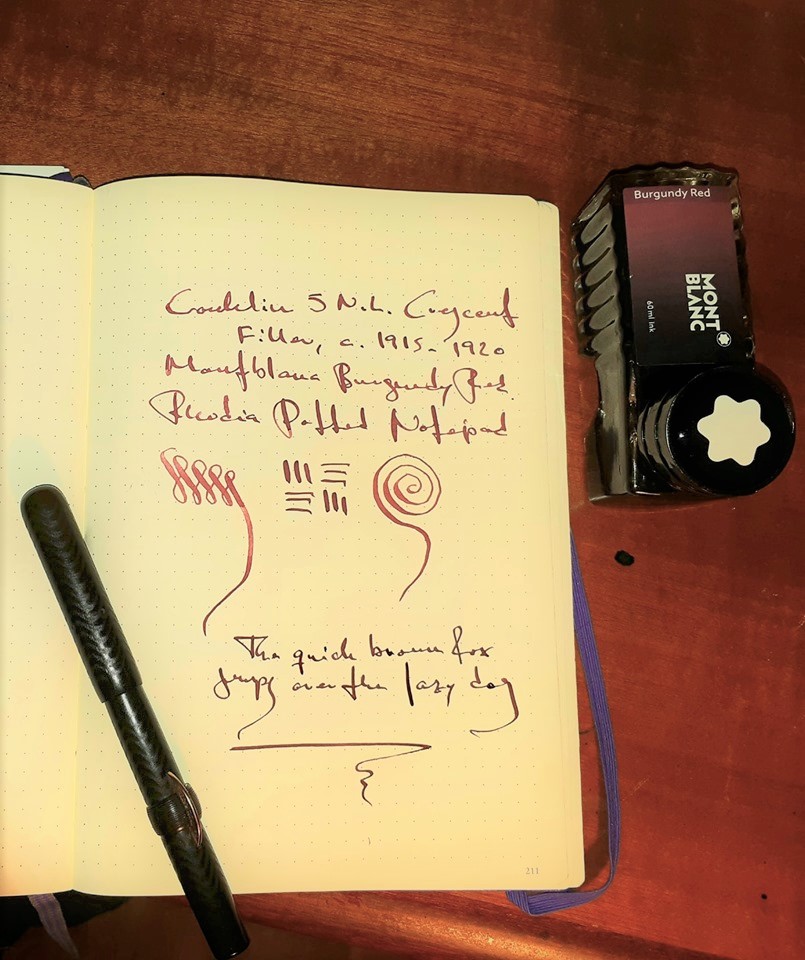 Conklin S N.L. Crescent
Filler, c. 1915-1920
Montblanc Burgundy Red
Rhodia Dotted Notepad
The quick brown fox
jumps over the lazy dog
211
Burgundy Red
MONT
BLANC
60 ml ink